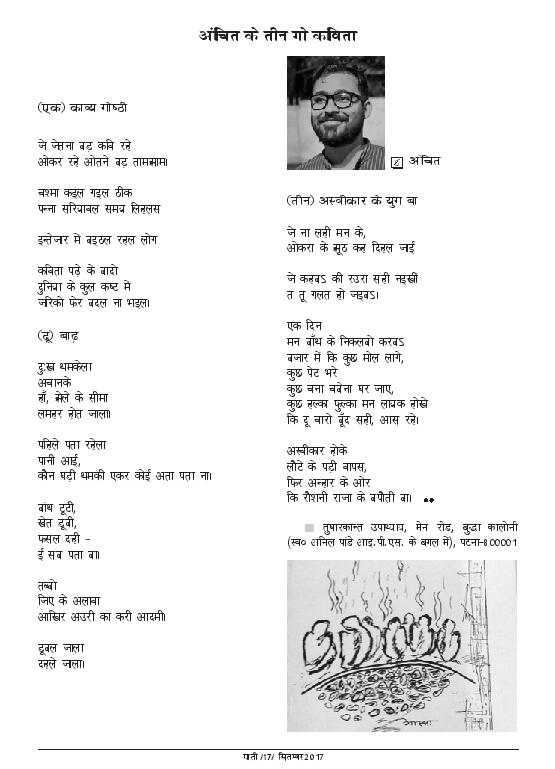 अंचित के तीन गो कविता
(एक) काव्य गोष्ठी
जे जेतना बड़ कवि रहे
ओकर रहे ओतने बड़ तामझाम।
चश्मा कइल गइल ठीक
पन्ना सरियावल समय लिहलस
इन्तेजार में बइठल रहल लोग
कविता पढ़े के बादो
दुनिया के कुल कष्ट में
जरिको फेर बदल ना भइल।
(दू) बाढ़
दुःख धमकेला
अचानके
हाँ, झेले के सीमा
लमहर होत जाला।
पहिले पता रहेला
पानी आई,
कौन घड़ी धमकी एकर कोई अता पता ना।
बांध टूटी,
खेत डूबी,
फसल दही -
ई सब पता बा।
तब्बो
जिए के अलावा
आखिर अउरी का करी आदमी।
डूबल जाला
दहले जाला।
अंचित
(तीन) अस्वीकार के युग बा
जे ना लही मन के,
ओकरा के झूठ कह दिहल जाई
जे कहबऽ की रउरा सही नइखीं
त तू गलत हो जइबऽ।
एक दिन
मन बाँध के निकलबो करबऽ
बजार में कि कुछ मोल लागे,
कुछ पेट भरे
कुछ चना चबेना घर जाए,
कुछ हल्का फुल्का मन लायक होखे
कि दू चारो बूँद सही, आस रहे।
अस्वीकार होके
लौटे के पड़ी वापस,
फिर अन्हार के ओर
कि रौशनी राजा के बपौती बा। ●●
तुषारकान्त उपाध्याय, मेन रोड, बुद्धा कालोनी
(स्व० अनिल पांडे आइ.पी.एस. के बगल में), पटना-800001
आस्था
पाती /17/ सितम्बर 2017